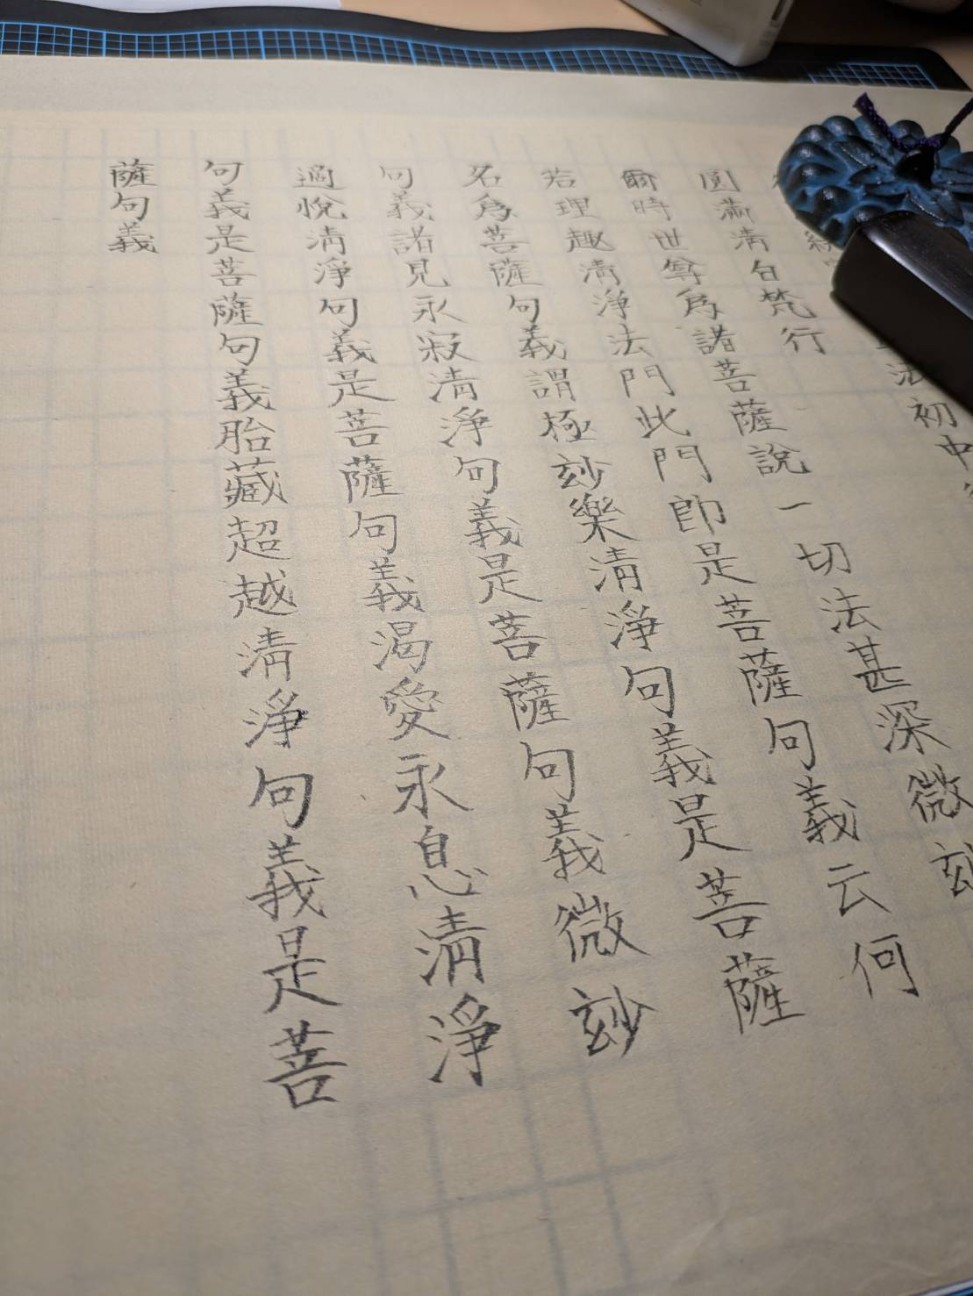 法初中
圓滿清白梵行
爾時世尊爲諸菩薩說一切法甚深微玅
若理趣清淨法門此門即是菩薩句義云何
名爲菩薩句義謂極玅樂清淨句義是菩薩
句義諸見永寂清淨句義是菩薩句義微玅
適悅清淨句義是菩薩句義渴愛永息清淨
句義是菩薩句義胎藏超越清淨句義是菩
薩句義